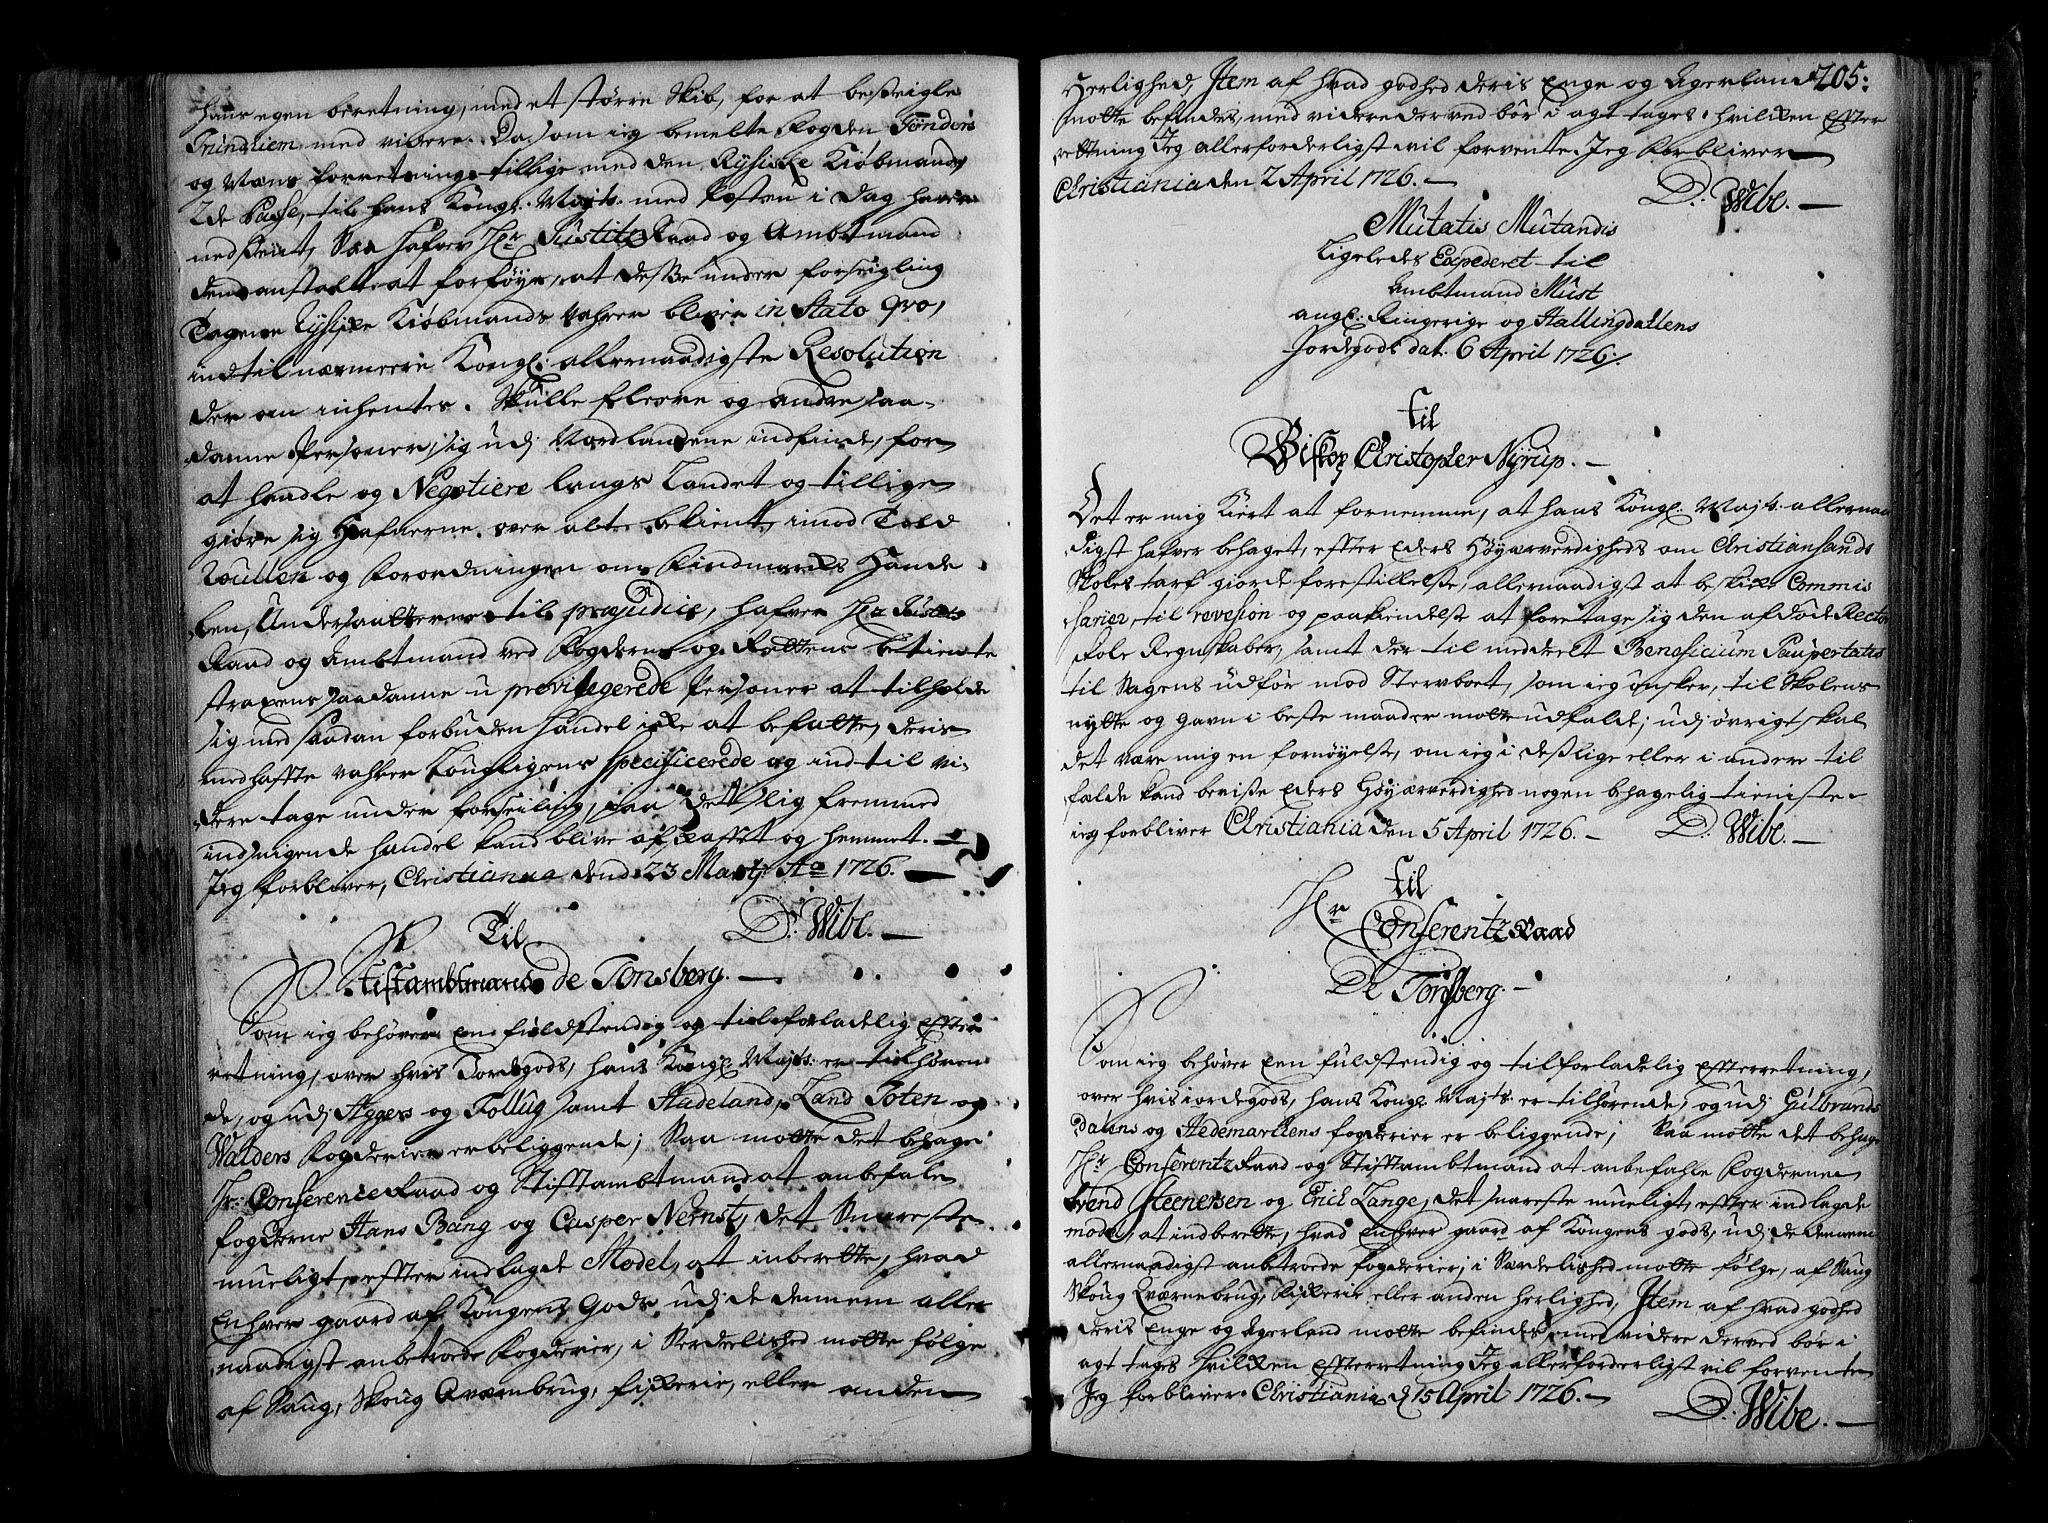 hans egen beretning, med et större Skib, for at besseigle
Trundhiem med videre. Da som ieg bemelte Fogden Tönders
og Mæns forretning tillige med den Rysiske Kiöbmands
2de Passe, til Hans Kongl. Majts. med Posten i Dag haver
nedsendt, Saa hafver Hr Justitz Raad og Ambtmand
dend anstalt at forföye, at desse under forseigling
Tagene Rysiske Kiöbmands vahrer bliver in Stato qvo,
indtil nærmere Kongl: allernaadigste Resolution
der om inhentes. Skulle fleere og andre saa-
danne Personer sig udj Nordlandene indfinde, for
at handle og Negotiere langs Landet og tillige
giöre sig Hafnerne over alt bekient, imod Told
Roullen og Forordningen om Findmarks Hande
len, Undersaatterne til præjudice, hafver Hr Justitz
Raad og Ambtmand ved Fogderne og Rettens betiente
strax saadanne u privilegerede Personer at tilholde
sig med saadan forbuden handel ikke at befatte, deris
medhaffte vahrer Louligens specificerede og indtil vi-
dere tage under forseiling, paa det slig fremmed
indsnigende handel kand blive afskaffet og hemmet.
Jeg forbliver, Christiania dend 23 Martj Ao 1726.
D: Wibe.
Til
Stiftambtmand de Tonsberg.
Som ieg behöver een fuldstendig og tilforladelig efter
retning, over hvis Jordegods, hans Kongl Majts. er tilhören
de, og udj Aggers og Follug samt Hadeland, Land Toten og
Walders Fogderier er beliggende; Saa motte det behage
Hr: Conference Raad og Stiftambtmand at anbefale
fogderne Hans Bang og Casper Nernst, det snareste
mueligt, effter indlagde Model, at inberette, hvad
Enhver gaard af Kongens Gods udj de dennem aller
naadigst anbetroede Fogderier, i Serdelished motte fölge
af Saug, Skoug Qværnbrug, fiskerie, eller anden
205:
Herlighed, Item af hvad godhed deris Enge og Agerland
motte befindes, med videre derved bör i agt tages. hvilken Effter
rettning Jeg allerforderligst vil forvente. Jeg forbliver
Christiania den 2 April 1726.
D: Wibe.
Mutatis Mutandis
Ligeledes Expederet til
Ambtmand Must
angl: Ringerige og Hallingdallens
Jordegods dat. 6 April 1726.
Til
Biskop Christopher Nyrup.
Det er mig Kiert at fornemme, at hans Kongl. Majts. allernaa
digst hafver behaget, effter Eders Höyærverdigheds om Christiansands
Skoles tarf giorde forestillelse, allernaadigst at beskikke Commis
sarier, til revesion og paakiendelse at foretage sig den afdöde Rectors
skole Regnskaber, samt der til meddeelt Beneficium Paupertatis
til Sagens udför mod Stervboet, som ieg önsker, til Skolens
nytte og gavn i beste maader motte udfalde; udj övrigt skal
det være mig en fornöyelse, om ieg i deslige eller i andere til
falde kand bevise Eders Höyærverdighed nogen behagelig tieniste.
ieg forbliver Christiania den 5 April 1726.
D: Wibe.
Til
Hr Conferentz Raad
De Tonsberg.
Som ieg behöver Een fuldstendig og tilforladelig efterretning,
over hvis iordegods, hans Kongl Majts. er tilhörende, og udj Gulbrands
dahns og Hedemarkens fogderier er beliggende; Saa motte det behage
Hr Conferentz Raad og Stiftambtmand at anbefahle Fogderne
Svend Steenersen og Erich Lange, det snareste mueligt, effter indlagde
model, at indberette, hvad enhver gaard af Kongens gods, udj de dennem
allernaadigst anbetroede fogderier, i Særdelished motte fölge, af Saug
Skoug Qværnebrug, Fiskerie eller anden herlighed, Item af hvad godhed
deris Enge og Agerland motte befindes, med videre derved bör i
agt tages hvilken Effterretning Jeg allerforderligst vil forvente
Jeg forbliver. Christiania d 15 April 1726.
D: Wibe.